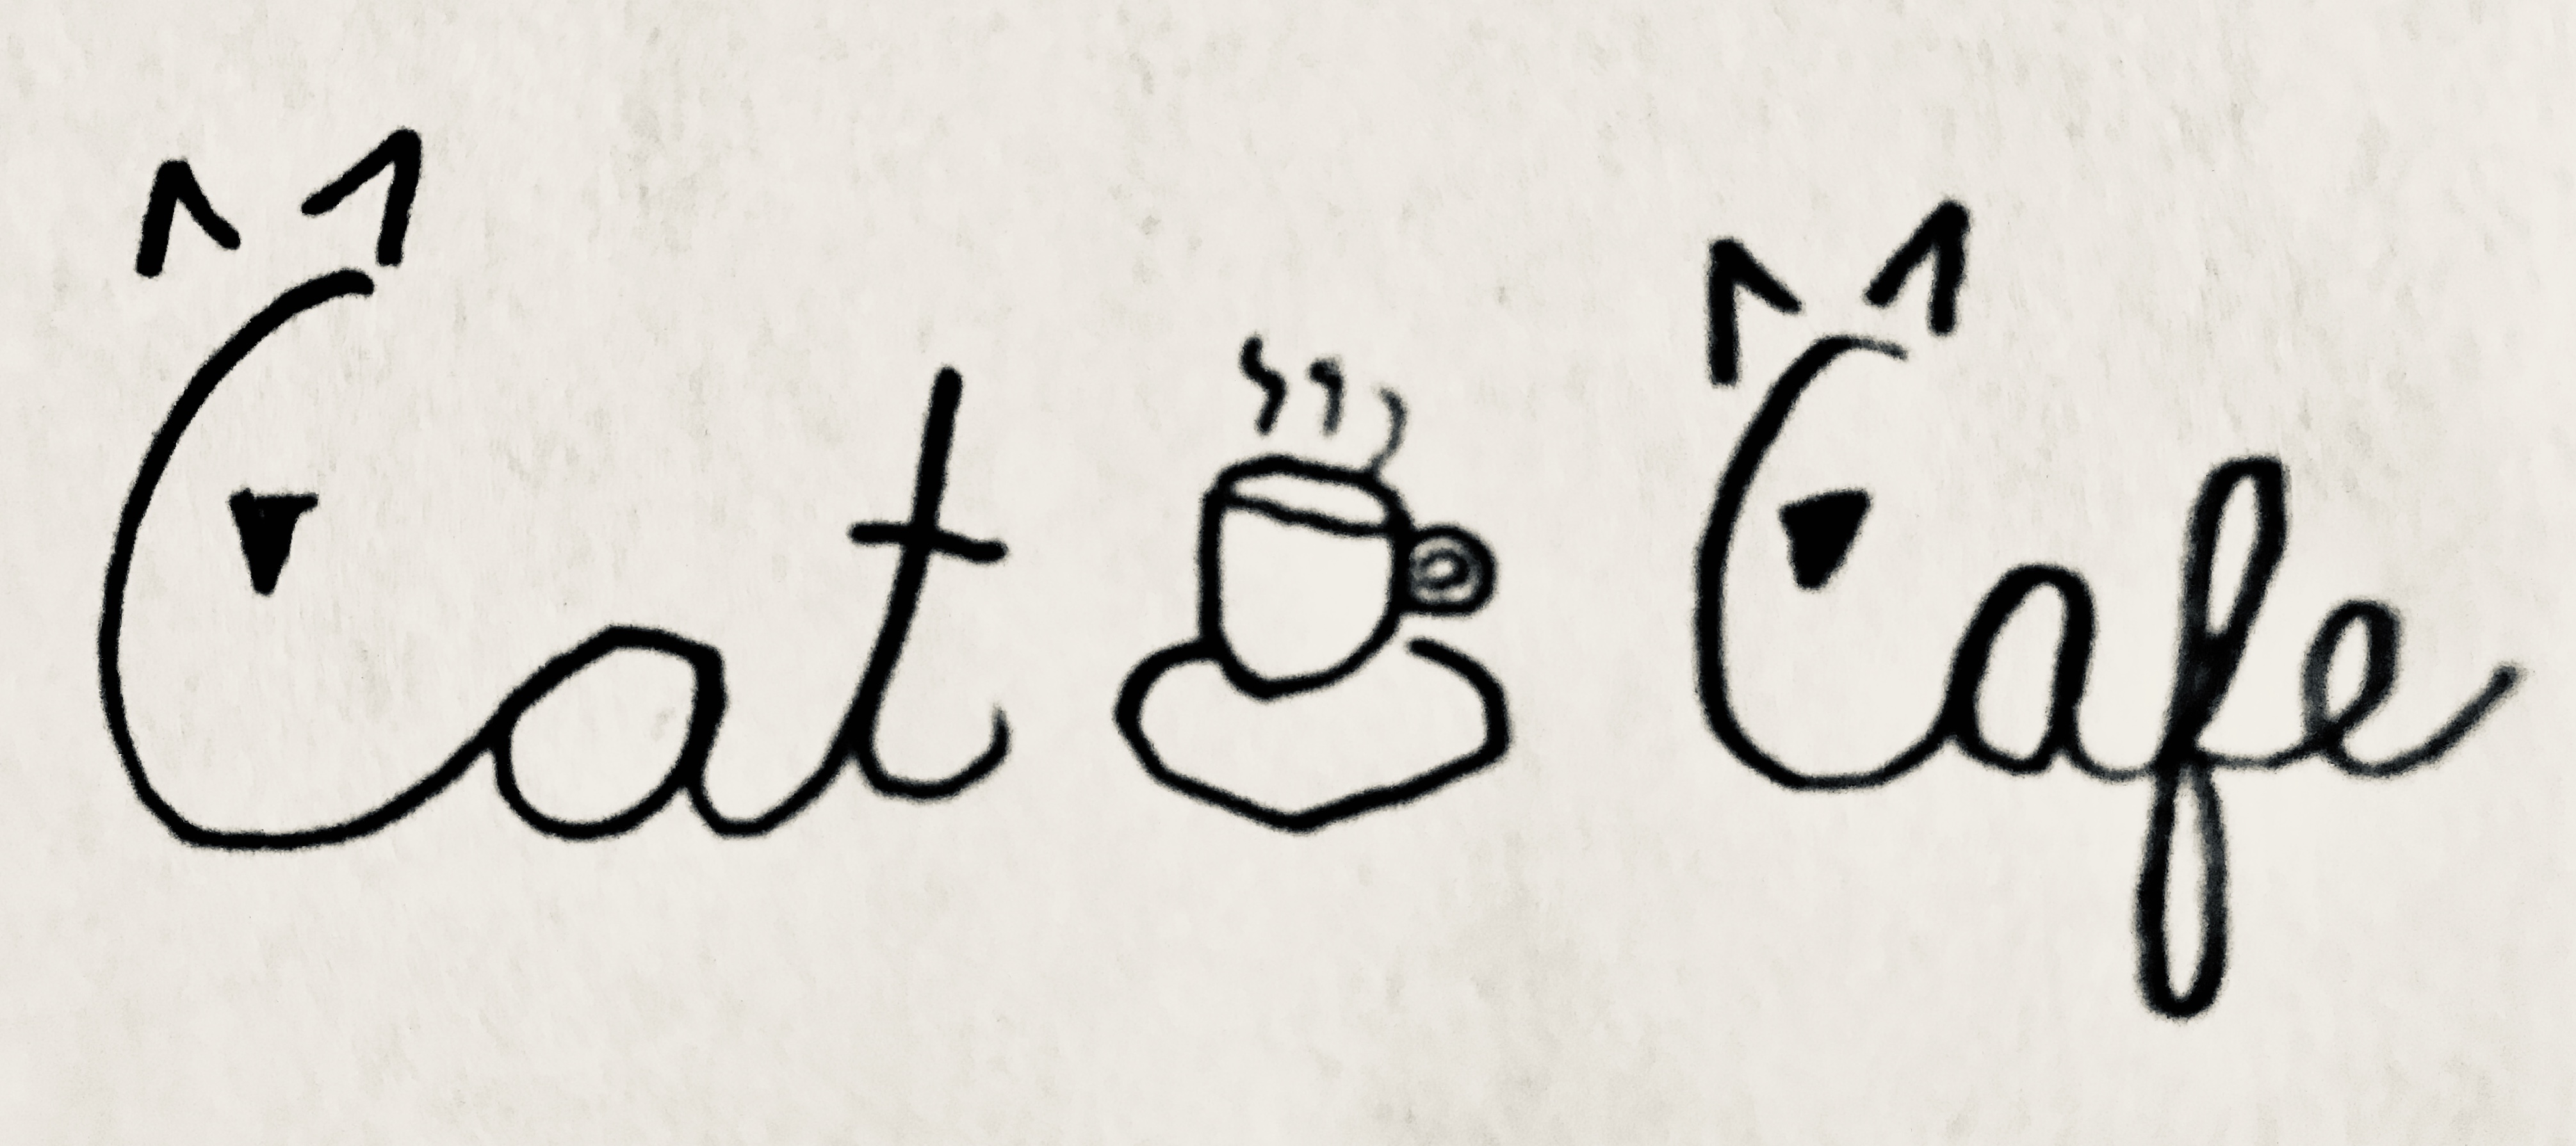 Cat Cafe